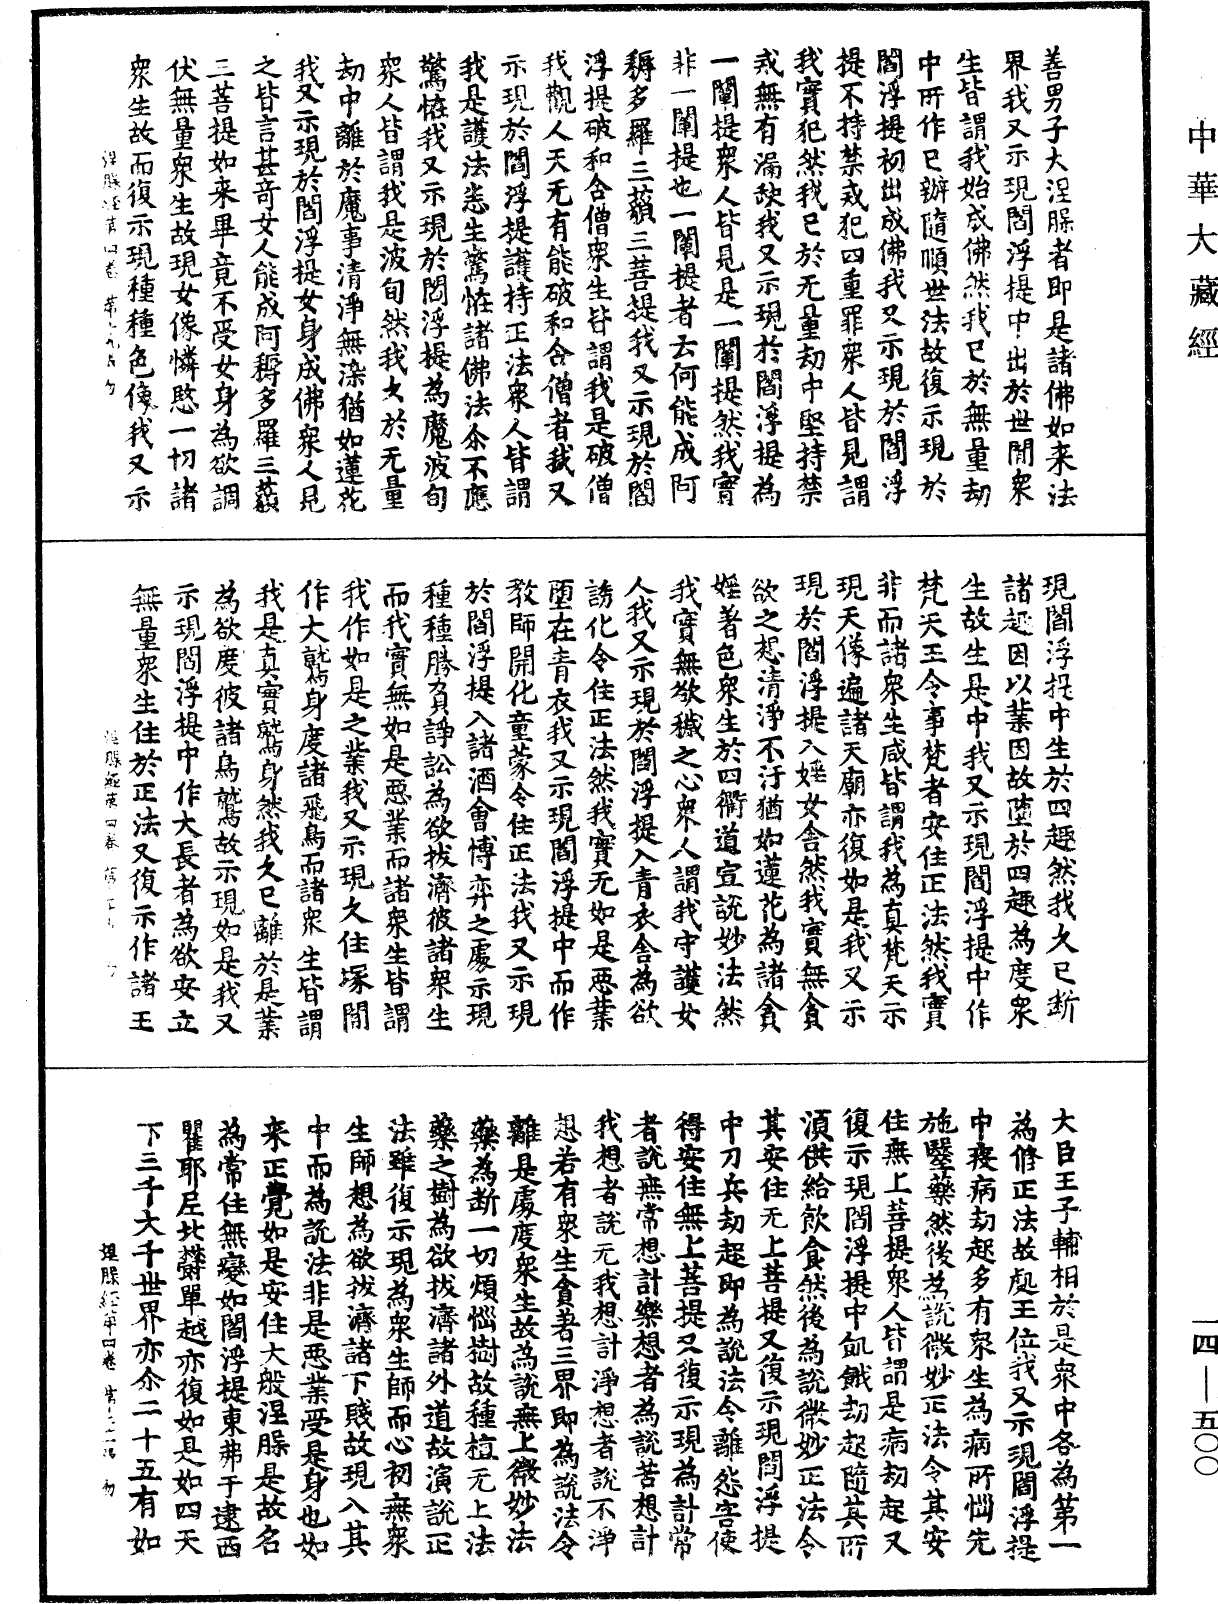 中華大藏經
善男子大涅槃者即是諸佛如来法
界我又示現閻浮提中出於世間衆
生皆謂我始成佛然我已於無量劫
中所作已辦隨順世法故復示現於
閻浮提初出成佛我又示現於閻浮
提不持禁戒犯四重罪衆人皆見謂
我實犯然我已於无量劫中堅持禁
戒無有漏缺我又示現於閻浮提為
一闡提衆人皆見是一闡提然我實
非一闡提也一闡提者云何能成阿
耨多羅三藐三菩提我又示現於閻
浮提破和合僧衆生皆謂我是破僧
我觀人天无有能破和合僧者我又
示現於閻浮提護持正法衆人皆謂
我是護法悉生驚恠諸佛法尒不應
驚恠我又示現於閻浮提為魔波旬
衆人皆謂我是波旬然我久於无量
劫中離於魔事清淨無染猶如蓮花
我又示現於閻浮提女身成佛衆人見
之皆言甚奇女人能成阿耨多羅三藐
三菩提如来畢竟不受女身為欲調
伏無量衆生故現女像憐愍一切諸
衆生故而復示現種種色像我又示
涅槃經第四卷 第十九張 勿
現閻浮提中生於四趣然我久已断
諸趣因以業因故墮於四趣為度衆
生故生是中我又示現閻浮提中作
梵天王令事梵者安住正法然我實
非而諸衆生咸皆謂我為真梵天示
現天像遍諸天廟亦復如是我又示
現於閻浮提入婬女舍然我實無貪
欲之想清淨不汙猶如蓮花為諸貪
婬著色衆生於四衢道宣說妙法然
我實無欲穢之心衆人謂我守護女
人我又示現於閻浮提入青衣舍為欲
誘化令住正法然我實无如是惡業
堕在青衣我又示現閻浮提中而作
教師開化童蒙令住正法我又示現
於閻浮提入諸酒會博弈之處示現
種種勝負諍訟為欲拔濟彼諸衆生
而我實無如是惡業而諸衆生皆謂
我作如是之業我又示現久住塚間
作大鷲身度諸飛鳥而諸衆生皆謂
我是真實鷲身然我久已離於是業
為欲度彼諸鳥鷲故示現如是我又
示現閻浮提中作大長者為欲安立
無量衆生住於正法又復示作諸王
涅槃經第四卷
大臣王子輔相於是衆中各為第一
為修正法故處王位我又示現閻浮提
中疫病劫起多有衆生為病所惱先
施醫藥然後為說微妙正法令其安
住無上菩提衆人皆謂是病劫起又
復示現閻浮提中飢餓劫起隨其所
須供給飲食然後為說微妙正法令
其安住无上菩提又復示現閻浮提
中刀兵劫起即為說法令離怨害使
得安住無上菩提又復示現為計常
者說無常想計樂想者為說苦想計
我想者說无我想計淨想者說不淨
想若有衆生貪著三界即為說法令
離是處度衆生故為說無上微妙法
藥為断一切煩惱樹故種植无上法
藥之樹為欲拔濟諸外道故演說正
法雖復示現為衆生師而心初無衆
生師想為欲拔濟諸下賤故現入其
中而為說法非是惡業受是身也如
来正覺如是安住大般涅槃是故名
為常住無變如閻浮提東弗于逮西
瞿耶尼北欝單越亦復如是如四天
下三千大千世界亦尒二十五有如
涅槃經第四卷
一四—五〇〇